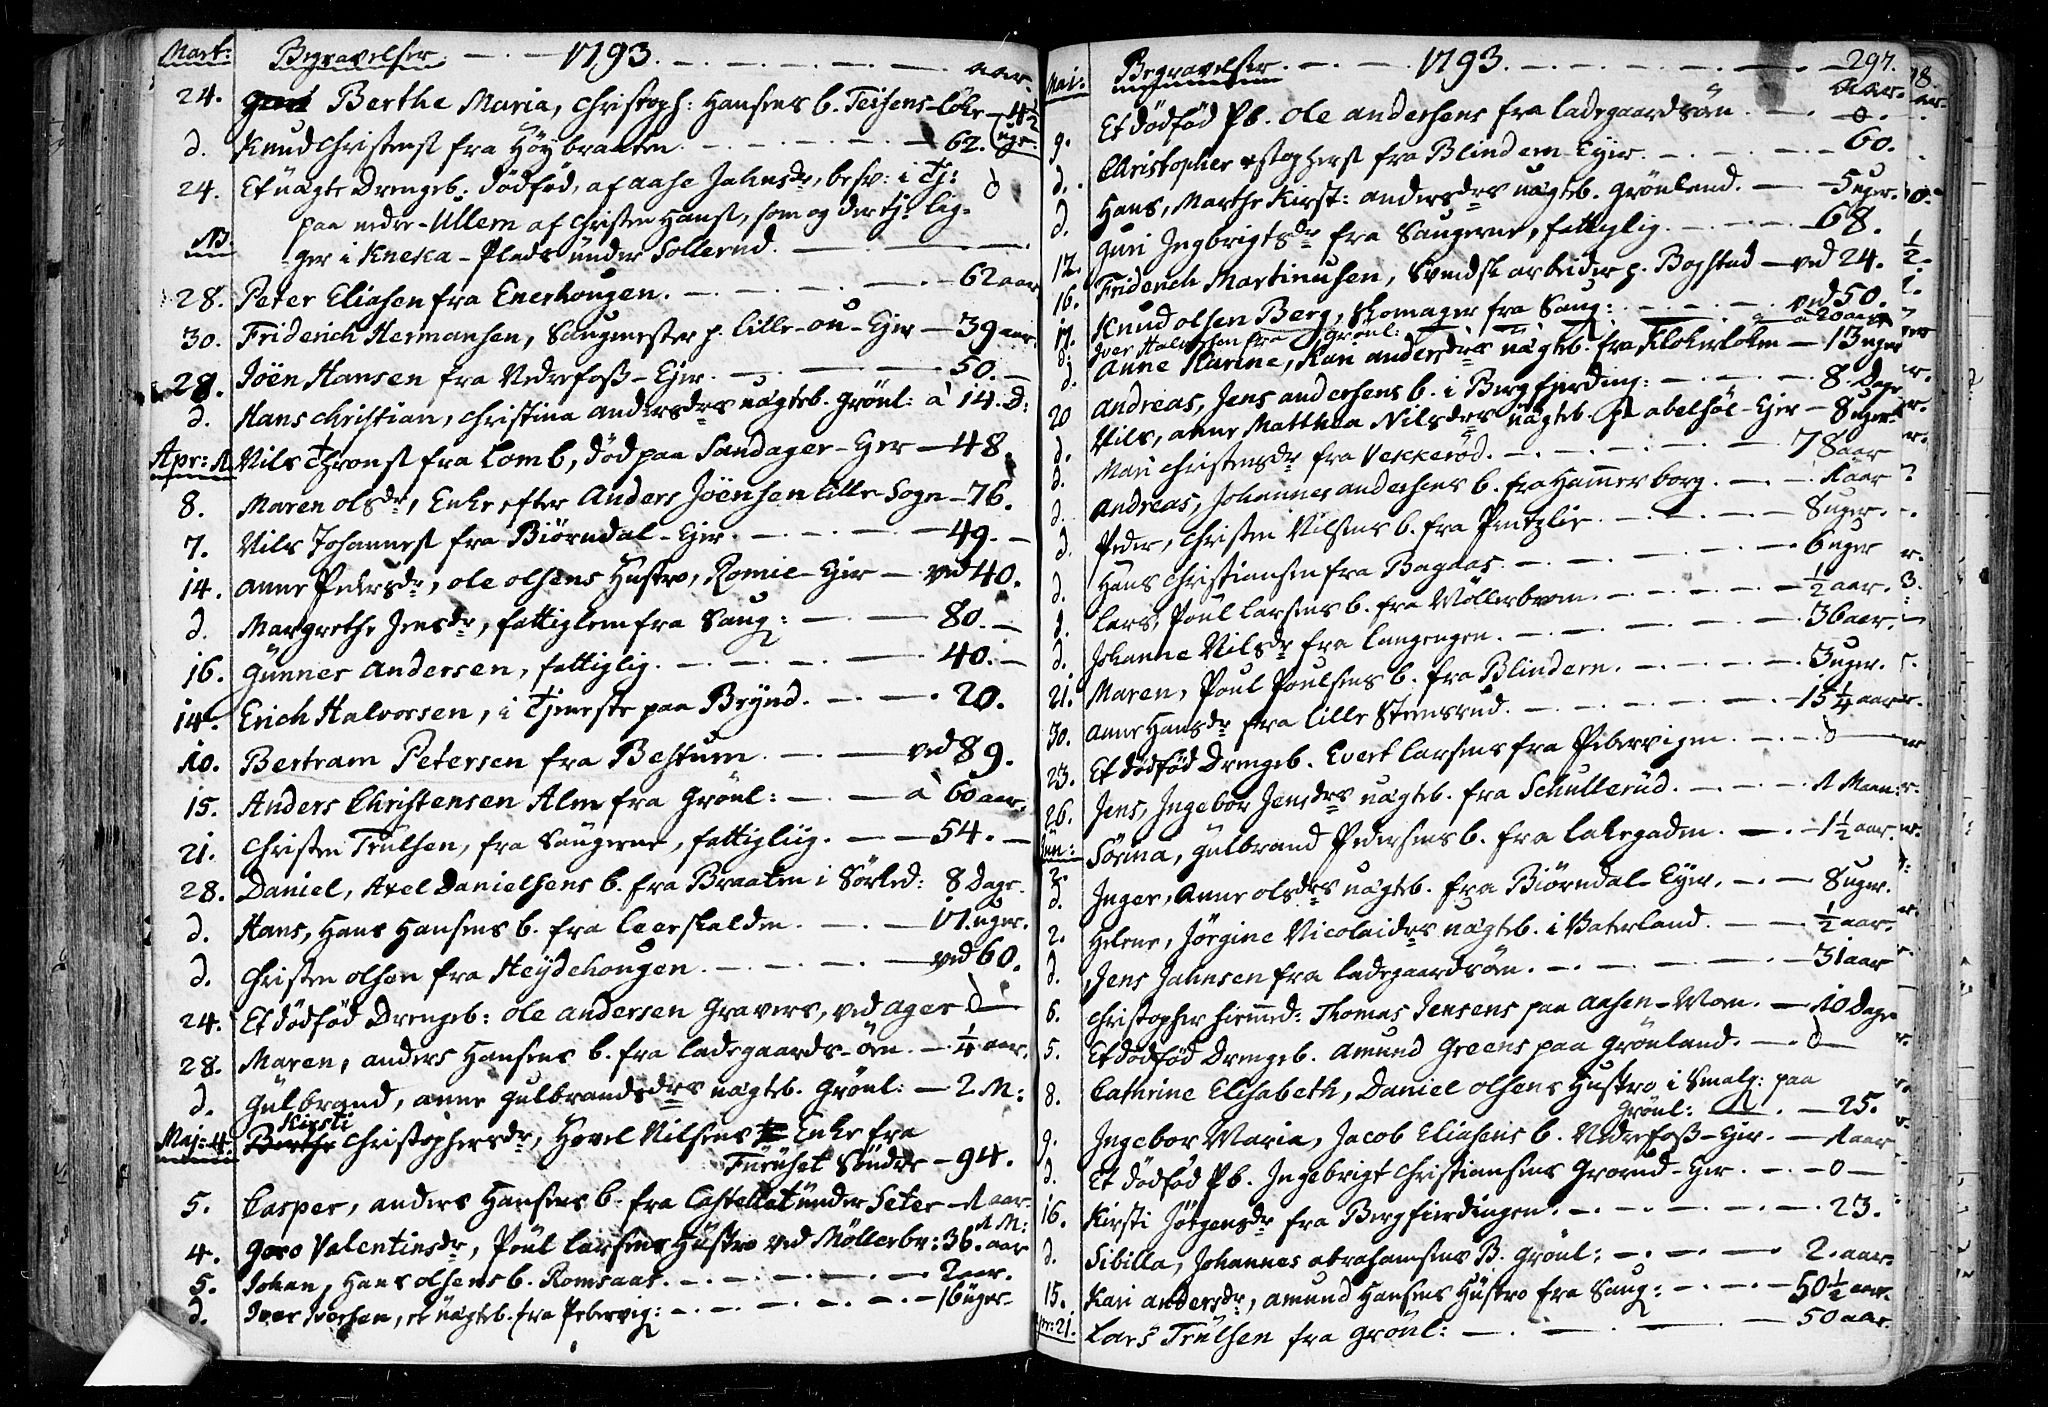 Mart: Begravelser 1793. aar.
24. Berthe Maria, Christoph: Hansens b. Teisens-løke - 42 uge.
d. Knud Christens. fra Høybraaten. 62.
24. Et uægte Drengeb. dødfød, af Aase Jahnsdr, besv: i Tj: d
paa nedre-Ullern af Christen Hans., som og der tj. lig-
NB. ger i Kneka-Plads under Sollerud.
28. Peter Eliasen fra Enerhougen. 62 aar
30. Friderich Hermansen, Saugmester p. lille-au-Ejer 39 aar
28. Jöen Hansen fra Nedrefoss-Ejer. 50.
d. Hans Christian, Christina Andersdrs uægteb. Grönl: à 14. D:
Apr: 1 Nils Thronsl fra Lomb, död paa Sandager-Eger 48.
8. Maren olsdr, Enke efter Anders Jöensen lille-Sogn 76.
7. Nils Johannesl fra Biörndal-Ejer. 49.
14. Anne Pedersdr, ole olsens Hustro, Romic-Ejer ved 40.
d. Margrethe Jensdr, fattiglem fra Saug: 80.
16. Gunner Andersen, fattiglig. 40.
14. Erich Halvorsen, i Tjeneste paa Brynd. 20.
10. Bertram Petersen fra Bestum. ved 89.
15. Anders Christensen Alm fra Grönl: à 60 aar.
21. Christen Trulsen, fra Saugerne, fattigliig. 54.
28. Daniel, Axel Danielsens b. fra Braaten i Sörked: 8 Dage.
d. Hans, Hans Hansens b. fra Leerskalden. 17 uger.
d. Christen olsen fra Heydehougen. ved 60.
24. Et dödföd Drengeb: ole Andersen Gravers, ved Ager d
28. Maren, anders Hansens b. fra Ladegaards-öen. 1/4 aar.
d. Gulbrand, anne Gulbrandsdrs uægteb. Grönl: 2. M:
Kirsti
Maj: 4. Berthe Christophersdr, Hovel Nilsens Enke fra
Furuset Söndre 94.
5. Casper, anders Hansens b. fra Castellet under Seter 1 aar.
1 M:
4. Goro Valentinsdr, Poul Larsens Hustro ved Möllerbr: 36. aar
5. Johan, Hans olsens b. Romsaas. 2 aar.
d. Iver Iversen, et uægteb. fra Pebervig: 16 uger.
Mai: Begravelser 1793. 297.
Aar.
9. Et dödföd Pb. ole Andersens fra Ladegaardsöen. 0.
d. Christopher stophersl fra Blindern-Ejer. 60.
d. Hans, Marthe Kirst: andersdrs uægteb. Grönland. 5 uger.
12. Guri Ingbrigtsdr fra Saugerne, fattiglig. 68.
16. Friderich Martinusen, Svendsk arbeider p. Bogstad ved 24.
17. Knud olsen Berg, Skomager fra Saug: ved 50.
d: Iver Halvorsen fra Grönl: à 20 aar
d. Anne Karine, Kari andersdrs uægteb. fra Klokerloken 13 uger
20 Andreas, Jens andersens b. i Bergfjerding: 8 Dage
d. Nils, anne Matthea Nilsdrs uægteb. fra abelsöe-Ejer 8 uger
d. Mari Christensdr fra Vekkeröd. 78 aar
d. Andreas, Johannes andersens b. fra Hammerborg. 1 aar
d. Peder, Christen Nilsens b. fra Pentzlie. 8 uger.
d. Hans Christiansen fra Bagaas. 6 uger
d. Lars, Poul Larsens b. fra Möllerbroen. 1/2 aar.
d. Johanne Nilsdr fra Langengen. 36 aar.
21. Maren, Poul Poulsens b. fra Blindern. 3 uger.
30. Anne Hansdr fra lille Stensrud. 15 1/4 aar
23. Et dödföd Drengeb. Evert Larsens fra Pibervigen. d
26. Jens, Ingebor Jensdrs uægteb. fra Schullerud. 1 Maan:
Jun: 2. Sörina, Gulbrand Pedersens b. fra Lakegaden. 1 1/2 aar.
d. Inger, Anne olsdrs uægteb. fra Biörndal-Ejer. 8 uger.
2. Helene, Jörgine Nicolaidrs uægteb. i Vaterland. 1/2 aar.
d. Jens Jahnsen fra Ladegaardsöen. 31 aar
6. Christopher hiemmed: Thomas Jensens paa Aasen-Moen. 10 Dage
5. Et dödföd Drengeb. Amund Greens paa Grönland. d
8. Cathrine Elisabeth, Daniel olsens Hustro i Smalg: paa
Grönl: 25.
9. Ingebor Maria, Jacob Eliasens b. Nedrefoss-Ejer. 1 aar
d. Et dödföd Pb. Ingebrigt Christiansens Grorud-Ejer. 0
16. Kirsti Jörgensdr fra Bergfierdingen. 23.
d. Sibilla, Johannes abrahamsens B. Grönl: 2. aar.
15. Kari andersdr, amund Hansens Hustro fra Saug: 50 1/2 aar.
21. Lars Trulsen fra Grönl: 50 aar.